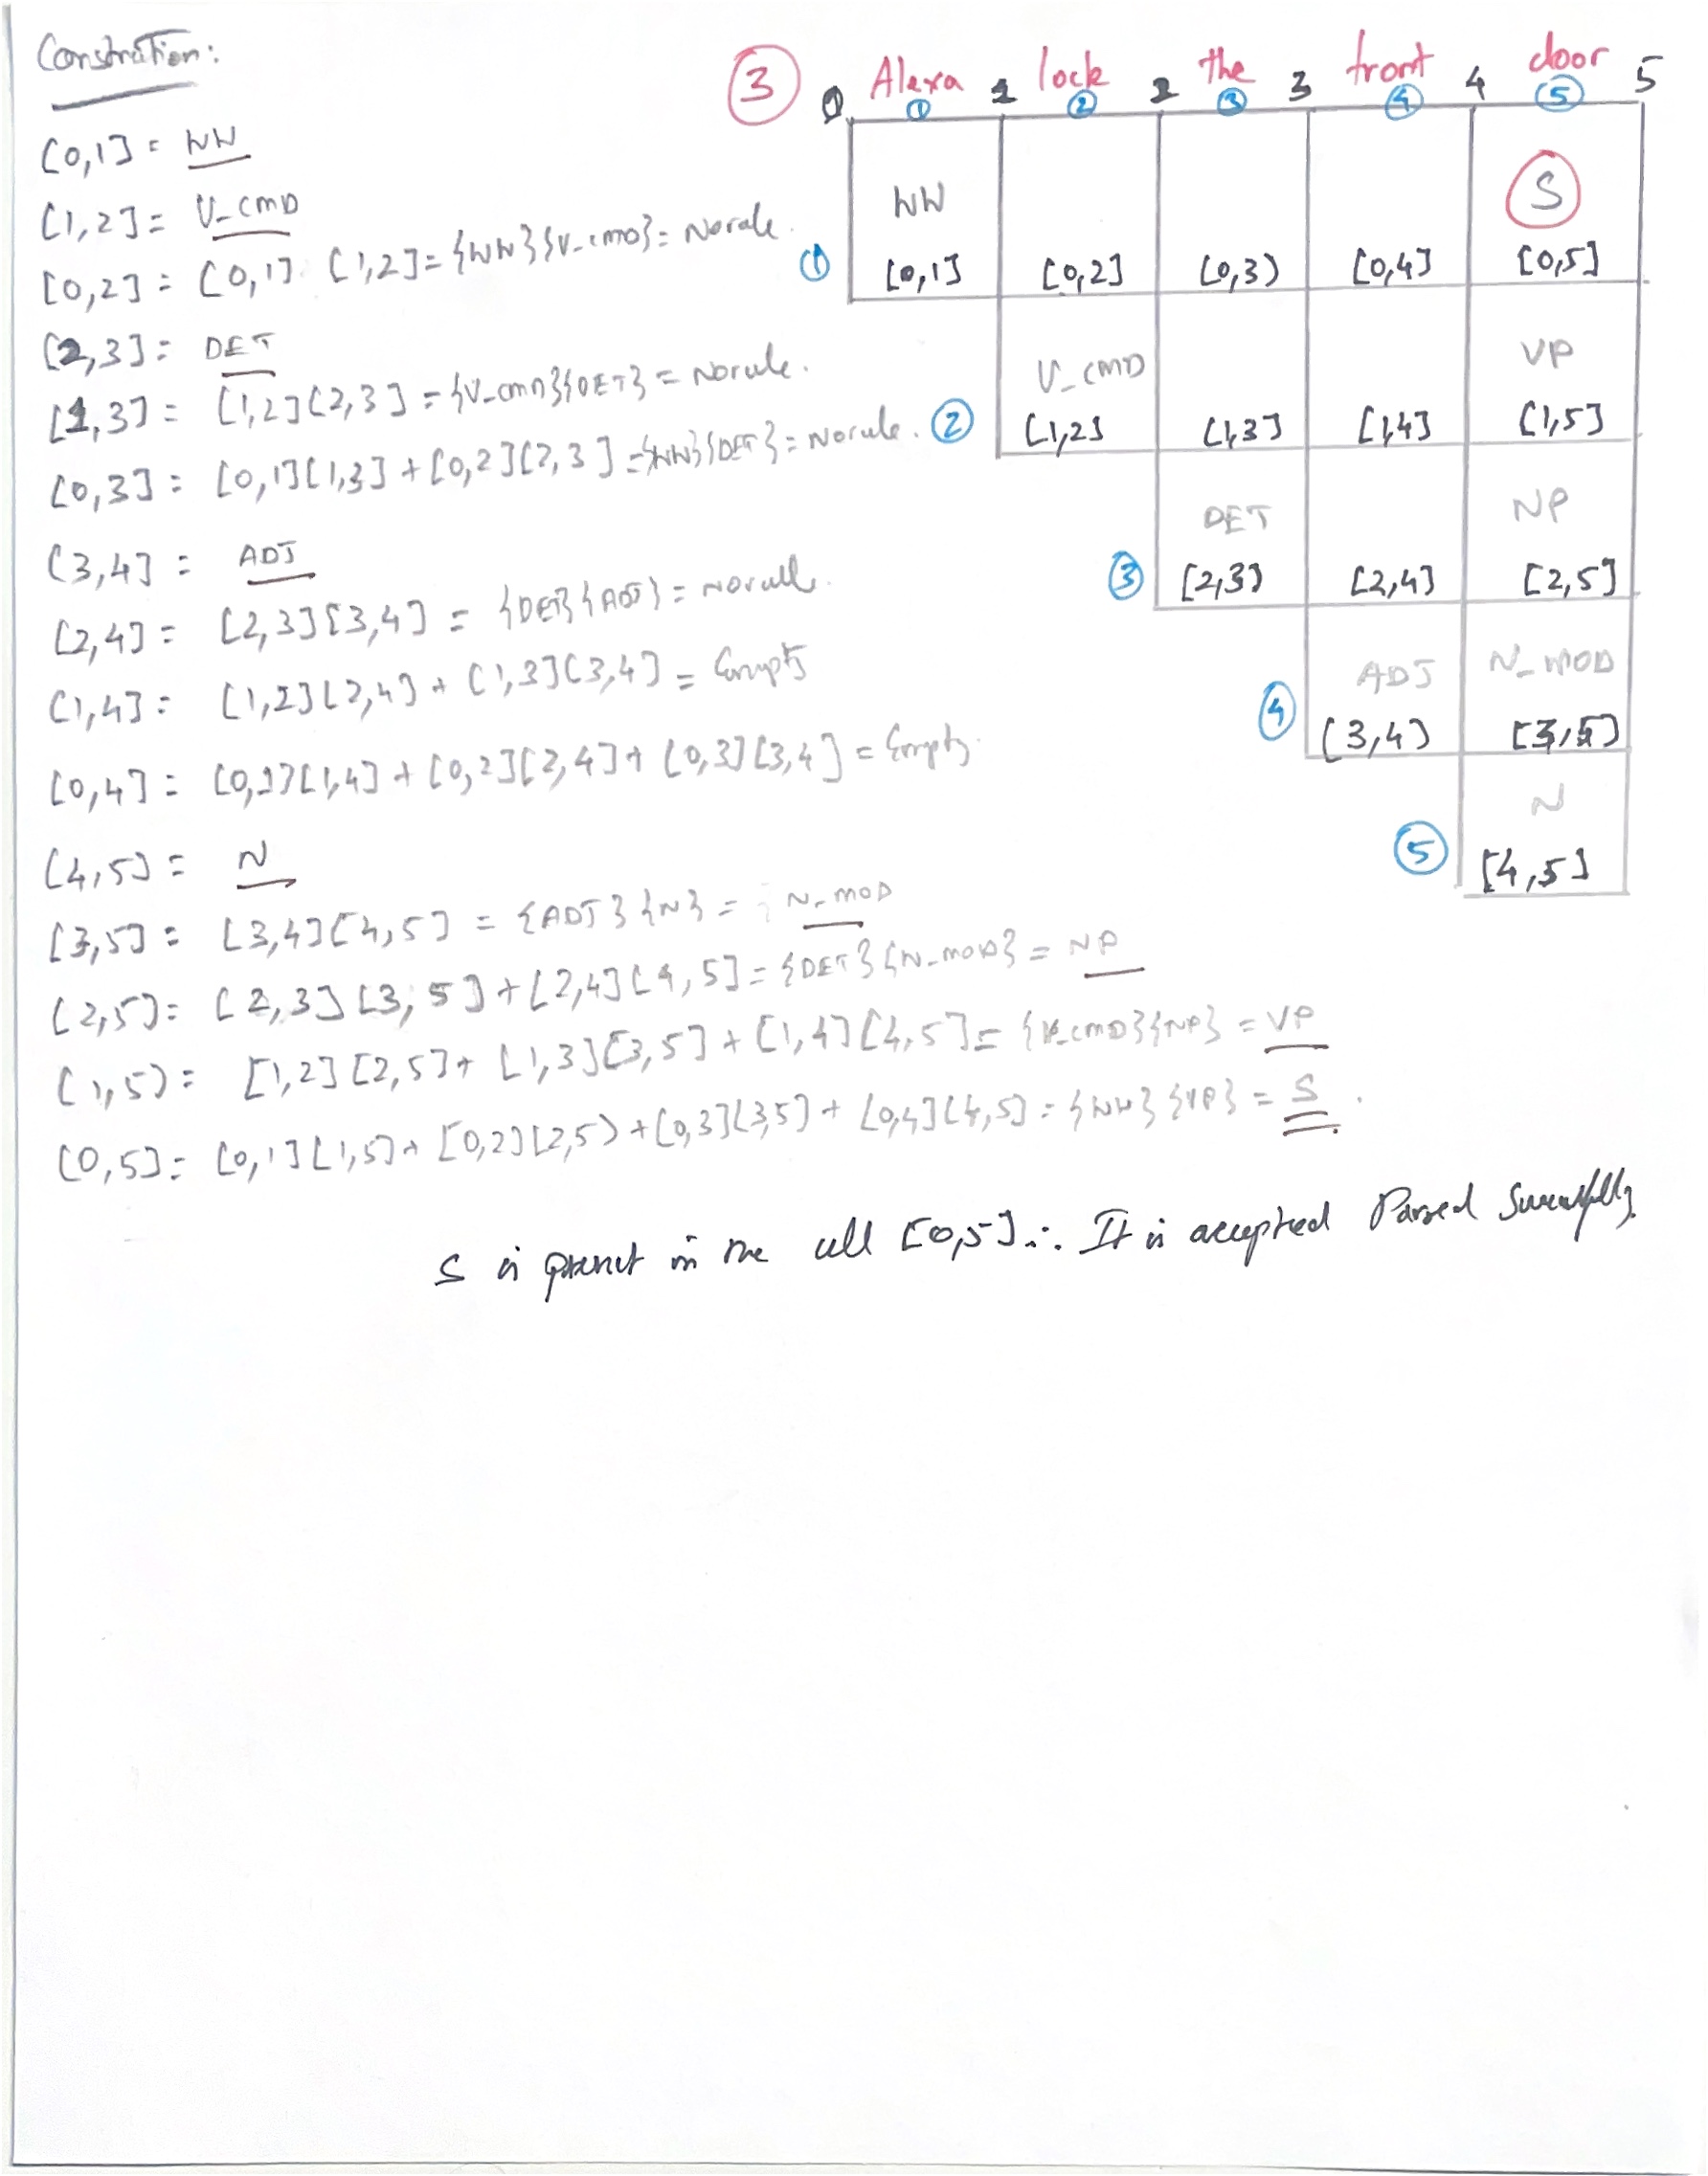 Constrution:
[0,1] = WW
[1,2] = V_CMD
[0,2] = [0,1] [1,2] = {WW}{V_CMD} = No rule.
[2,3] = DET
[1,3] = [1,2][2,3] = {V_CMD}{DET} = No rule.
[0,3] = [0,1][1,3] + [0,2][2,3] = {WW}{DET} = No rule.
[3,4] = ADJ
[2,4] = [2,3][3,4] = {DET}{ADJ} = no rule.
[1,4] = [1,2][2,4] + [1,3][3,4] = Empty
[0,4] = [0,1][1,4] + [0,2][2,4] + [0,3][3,4] = Empty
[4,5] = N
[3,5] = [3,4][4,5] = {ADJ}{N} = N_MOD
[2,5] = [2,3][3,5] + [2,4][4,5] = {DET}{N_MOD} = NP
[1,5) = [1,2][2,5] + [1,3][3,5] + [1,4][4,5] = {V_CMD}{NP} = VP
[0,5] = [0,1][1,5] + [0,2][2,5) + [0,3][3,5] + [0,4][4,5] = {WW}{VP} = S.
3 0 Alexa 1 lock 2 the 3 front 4 door 5
1 2 3 4 5
WW S
1 [0,1] [0,2] [0,3) [0,4] [0,5]
V_CMD VP
2 [1,2] [1,3] [1,4] [1,5]
DET NP
3 [2,3) [2,4] [2,5]
ADJ N_MOD
4 [3,4) [3,5]
N
5 [4,5]
S is present in the cell [0,5] ∴ It is accepted Parsed Successfully.